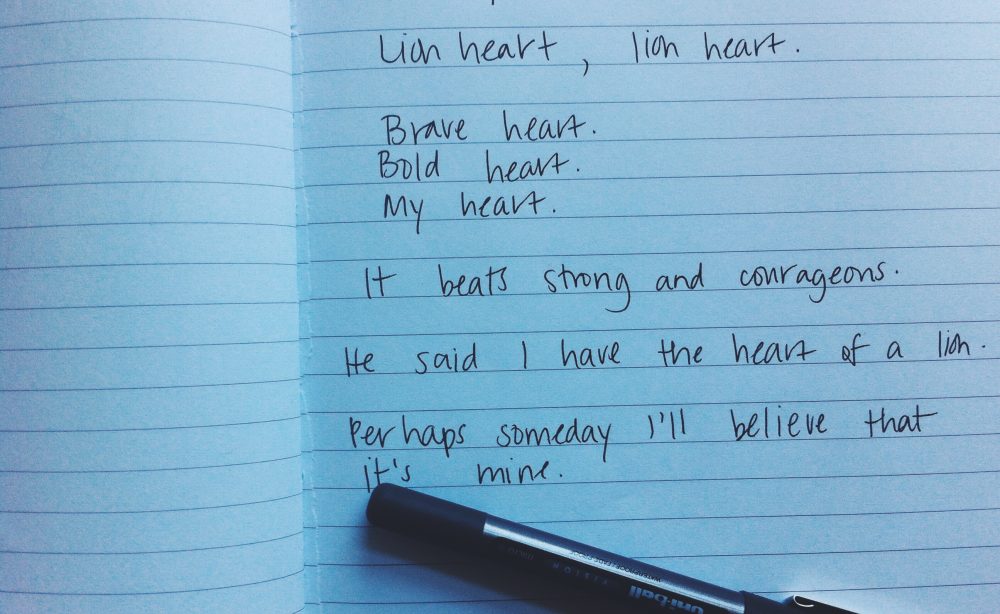 Lion heart, lion heart.
Brave heart.
Bold heart.
My heart.
It beats strong and courageous.
He said I have the heart of a lion.
Perhaps someday I'll believe that
it's mine.
uni-ball
VISION